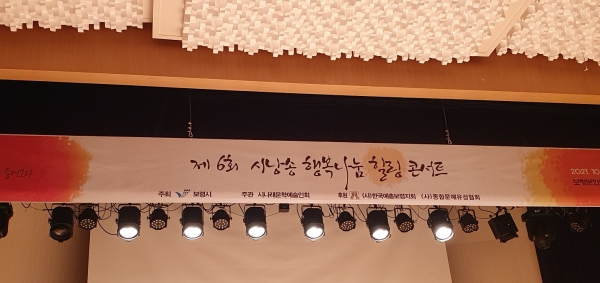 제 6회 시낭송 행복나눔 힐링 콘서트
2021. 10
주최 보령시 주관 시나래문학예술인회 후원 (사)한국예총보령지회 (사)종합문예유성협회